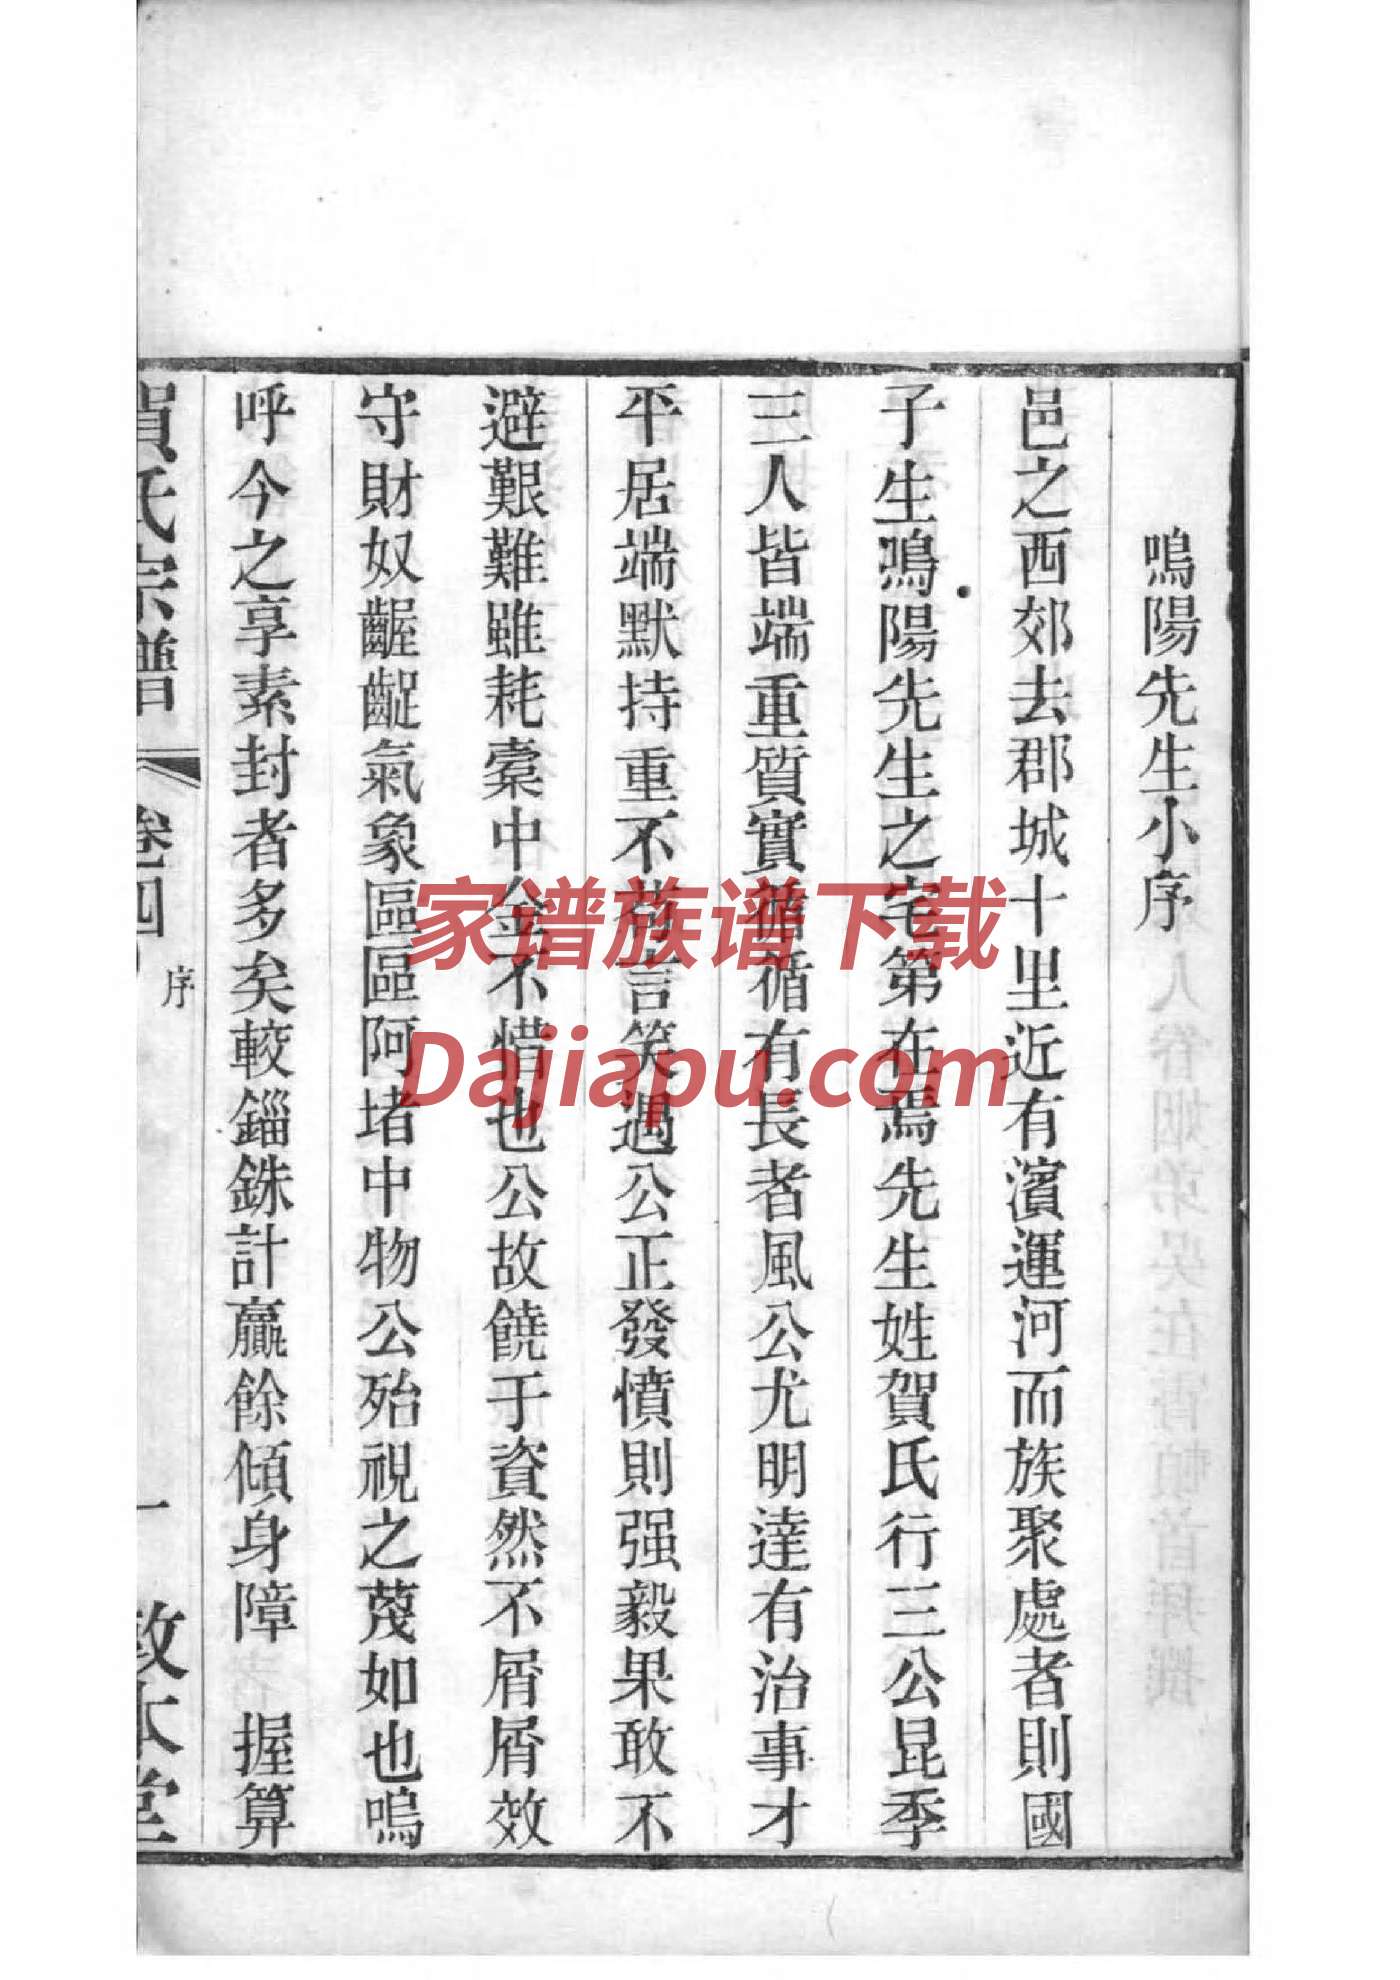 鳴陽先生小序
邑之西郊去郡城十里近有濱運河而族聚處者則國
子生鳴陽先生之宅第在焉先生姓賀氏行三公昆季
三人皆端重質實循循有長者風公尤明達有治事才
平居端默持重不苟言笑遇公正發憤則强毅果敢不
避艱難雖耗橐中金不惜也公故饒于資然不屑屑效
守財奴齷齪氣象區區阿堵中物公殆視之蔑如也嗚
呼今之享素封者多矣較錙銖計贏餘傾身障 握算
賀氏宗譜 卷四 序 一 敦本堂
家谱族谱下载
Dajiapu.com